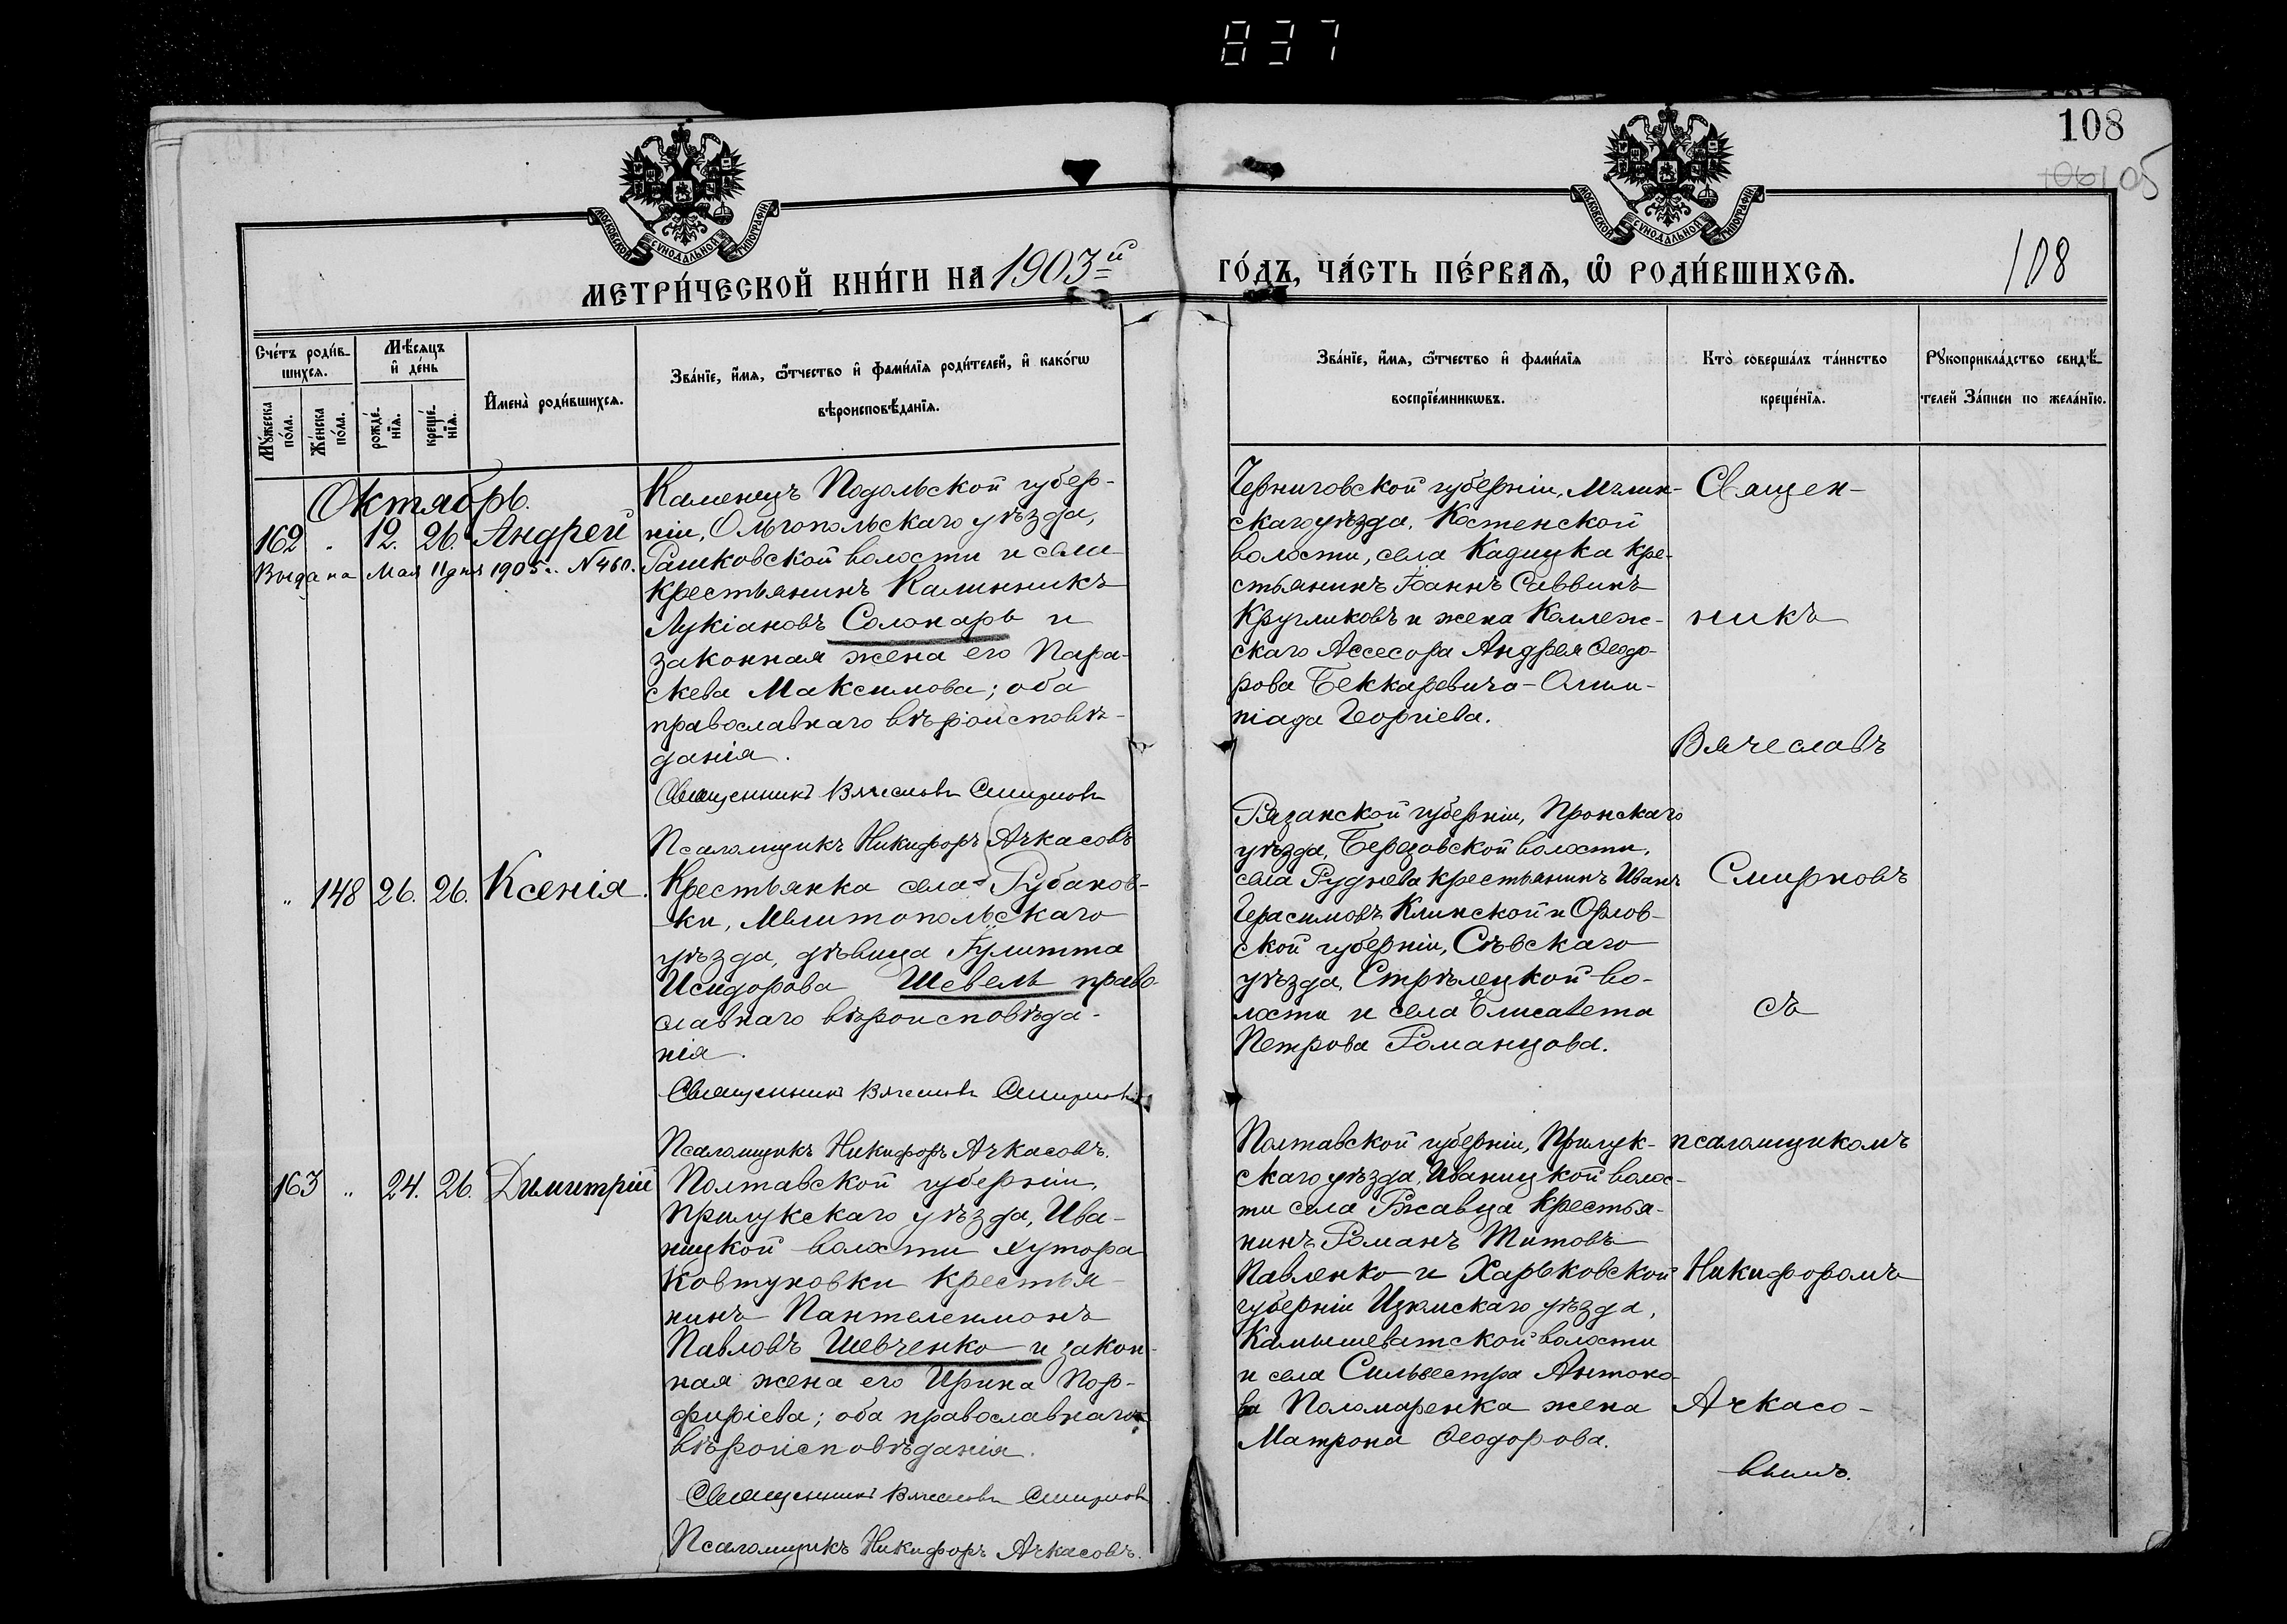 837
108
105
МОСКОВСКОЙ СѴНОДАЛЬНОЙ ТИПОГРАФІИ
МОСКОВСКОЙ СѴНОДАЛЬНОЙ ТИПОГРАФІИ
МЕТРИ́ЧЕСКОЙ КНИ́ГИ НА 1903й
ГО́ДЪ, ЧА́СТЬ ПЕ́РВАѦ, Ѡ҆ РОДИ́ВШИХСѦ.
108
Сче́тъ роди́в-
шихсѧ.
Мꙋ́жеска по́ла.
Же́нска по́ла.
Мѣ́сѧцъ и҆ де́нь
рожде́-
нїѧ.
креще́-
нїѧ.
И҆мена̀ роди́вшихсѧ.
Зва́нїе, и҆́мѧ, ѻ҆́тчество и҆ фами́лїѧ роди́телей, и҆ како́гѡ
вѣроисповѣ́данїѧ.
Зва́нїе, и҆́мѧ, ѻ҆́тчество и҆ фами́лїѧ
воспрїе́мникѡвъ.
Кто̀ соверша́лъ та́инство
креще́нїѧ.
Рꙋкоприкла́дство свидѣ́-
телей За́писи по жела́нїю.
Октябрь.
162 " 12. 26. Андрей
Выдана Мая 11 дня 1905 г. N 460.
Каменецъ Подольской губер-
ніи, Ольгопольскаго уѣзда,
Рашковской волости и села
крестьянинъ Калинникъ
Лукіановъ Солонарь и
законная жена его Пара-
скева Максимова; оба
православнаго вѣроисповѣ-
данія.
Священникъ Вячеславъ Смирновъ
Псаломщикъ Никифоръ Ачкасовъ
Черниговской губерніи, Мглин-
скаго уѣзда, Костенской
волости, села Кадецка кре-
стьянинъ Іоаннъ Саввинъ
Кругликовъ и жена Коллеж-
скаго Ассесора Андрея Ѳеодо-
рова Беккаревича - Олим-
піада Георгіева.
Священ-
никъ
Вячеславъ
Смирновъ
съ
псаломщикомъ
Никифоромъ
Ачкасо-
вымъ.
" 148 26. 26. Ксенія.
Крестьянка села Рубанов-
ки, Мелитопольскаго
уѣзда, дѣвица Іулитта
Исидорова Шевель право-
славнаго вѣроисповѣда-
нія.
Священникъ Вячеславъ Смирновъ
Псаломщикъ Никифоръ Ачкасовъ.
Рязанской губерніи, Пронскаго
уѣзда, Березовской волости,
села Руднева крестьянинъ Иванъ
Герасимовъ Клинской и Орлов-
ской губерніи, Сѣвскаго
уѣзда, Стрѣлецкой во-
лости и села Елисавета
Петрова Романцова.
163 " 24. 26. Димитрій
Полтавской губерніи,
Прилукскаго уѣзда, Ива-
ницкой волости хутора
Ковтуновки крестья-
нинъ Пантелеимонъ
Павловъ Шевченко и закон-
ная жена его Ирина Пор-
фиріева; оба православнаго
вѣроисповѣданія.
Священникъ Вячеславъ Смирновъ
Псаломщикъ Никифоръ Ачкасовъ.
Полтавской губерніи, Прилук-
скаго уѣзда, Иваницкой волос-
ти села Ржавца крестья-
нинъ Романъ Титовъ
Павленко и Харьковской
губерніи Изюмскаго уѣзда,
Камышеватской волости
и села Сильвестра Антоно-
ва Поломаренка жена
Матрона Ѳеодорова.